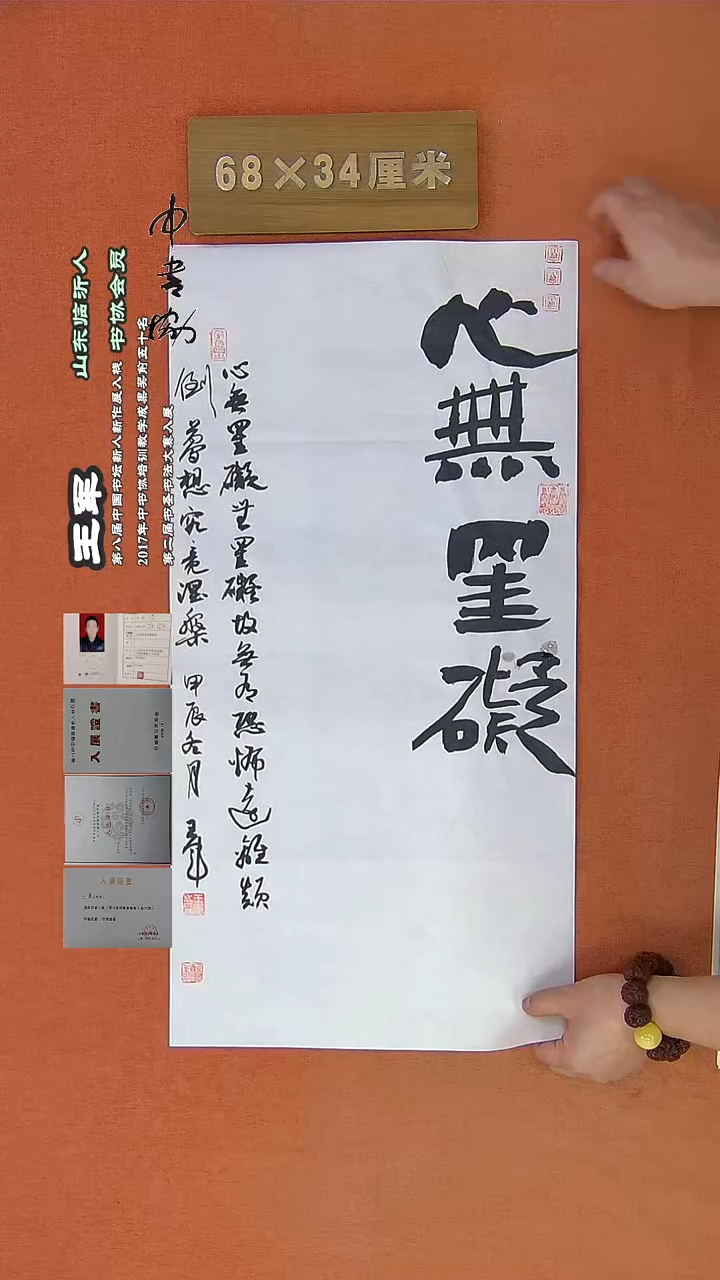 68×34厘米
心無罣礙
心無罣礙無罣礙故無有恐怖遠離顛
倒夢想究竟涅槃 甲辰冬月 王軍
中书协
山东临沂人
书协会员
王军
第八届中国书坛新人新作展入展
2017年中书协培训教学成果奖前五十名
第二届书圣书法大赛入展
入展證書